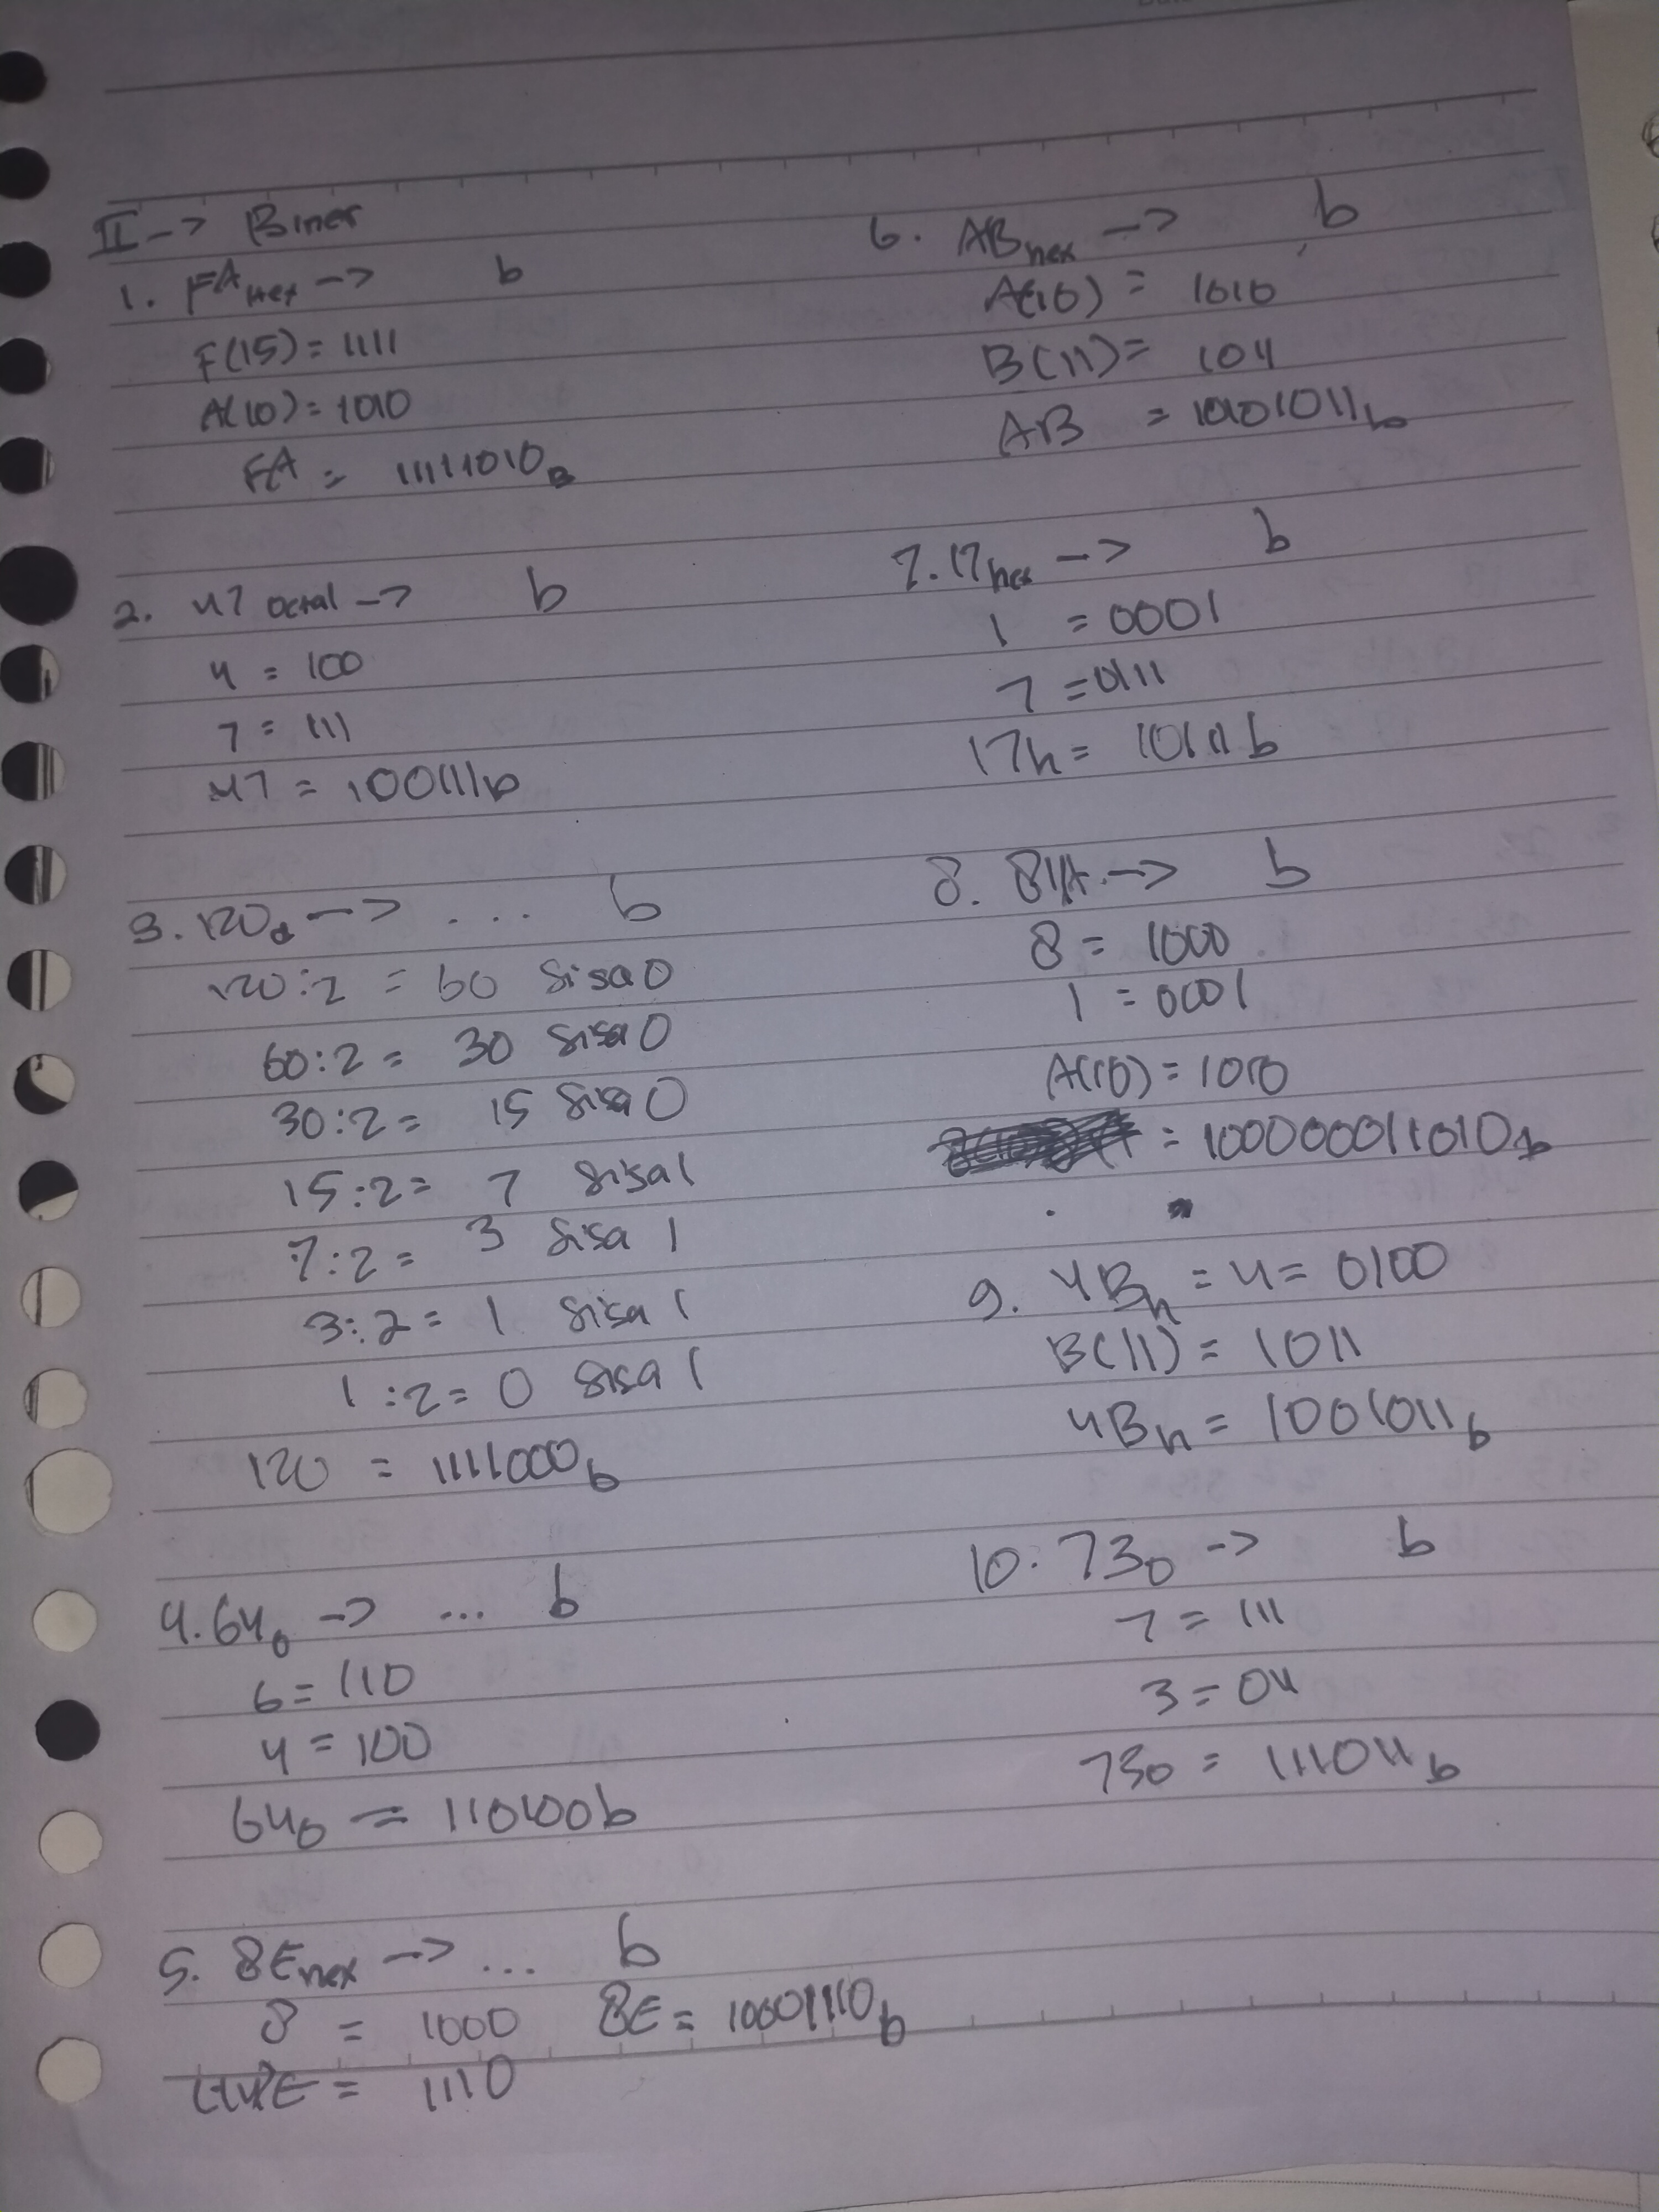 II -> Biner
1. FA Hex -> b
F(15) = 1111
A(10) = 1010
FA = 11111010 B
2. 47 Octal -> b
4 = 100
7 = 111
47 = 100111b
3. 120d -> ... b
120:2 = 60 Sisa 0
60:2 = 30 Sisa 0
30:2 = 15 Sisa 0
15:2 = 7 Sisa 1
7:2 = 3 Sisa 1
3:2 = 1 Sisa 1
1:2 = 0 Sisa 1
120 = 1111000b
4. 64o -> ... b
6 = 110
4 = 100
64o = 110100b
5. 8E hex -> ... b
8 = 1000 8E = 10001110b
E = 1110
6. AB hex -> b
A(10) = 1010
B(11) = 1011
AB = 10101011b
7. 17 hex -> b
1 = 0001
7 = 0111
17h = 10111b
8. 81A -> b
8 = 1000
1 = 0001
A(10) = 1010
= 100000011010b
9. 4Bh = 4 = 0100
B(11) = 1011
4Bh = 1001011b
10. 73o -> b
7 = 111
3 = 011
73o = 111011b